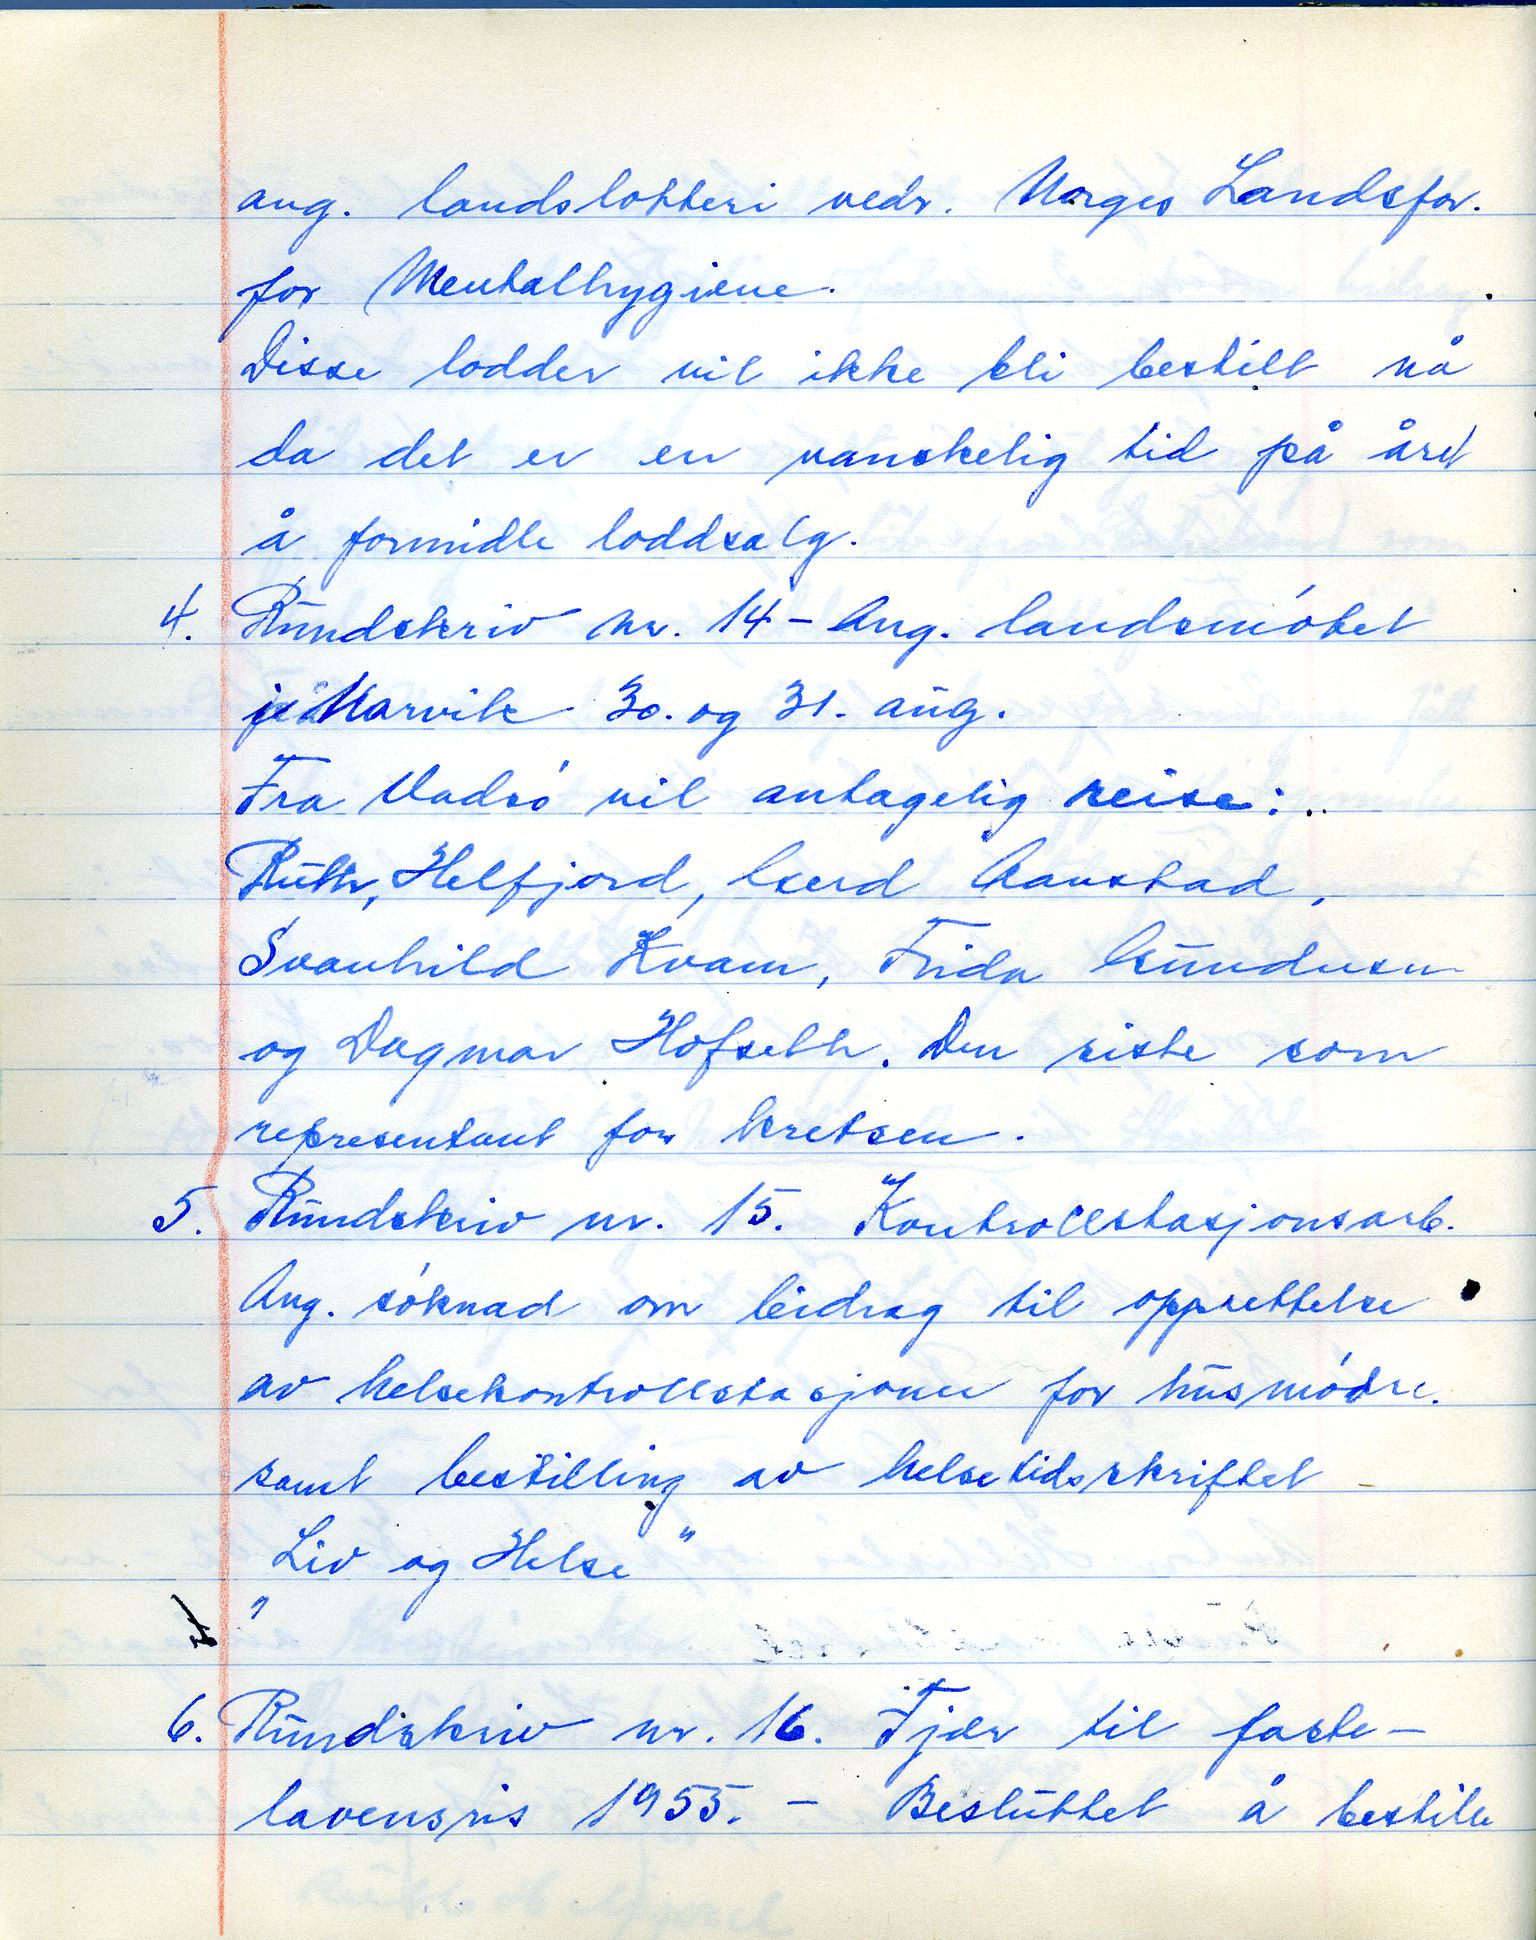 ang. landslotteri vedr. Norges Landsfor.
for Mentalhygiene.
Disse lodder vil ikke bli bestilt nå
da det er en vanskelig tid på året
å formidle loddsalg.
4. Rundskriv nr. 14 – Ang. landsmøtet
i Narvik 30. og 31. aug.
Fra Vadsø vil antagelig reise:
Ruth, Helfjord, Gerd Aanstad,
Svanhild Kvam, Frida Gundersen
og Dagmar Hofseth. Den siste som
representant for kretsen.
5. Rundskriv nr. 15. Kontrollstasjonsarb.
Ang. søknad om bidrag til opprettelse
av helsekontrollstasjoner for husmødre.
samt bestilling av helsetidsskriftet
"Liv og Helse"
6. Rundskriv nr. 16. Fjær til faste-
lavensris 1955. – Besluttet å bestille